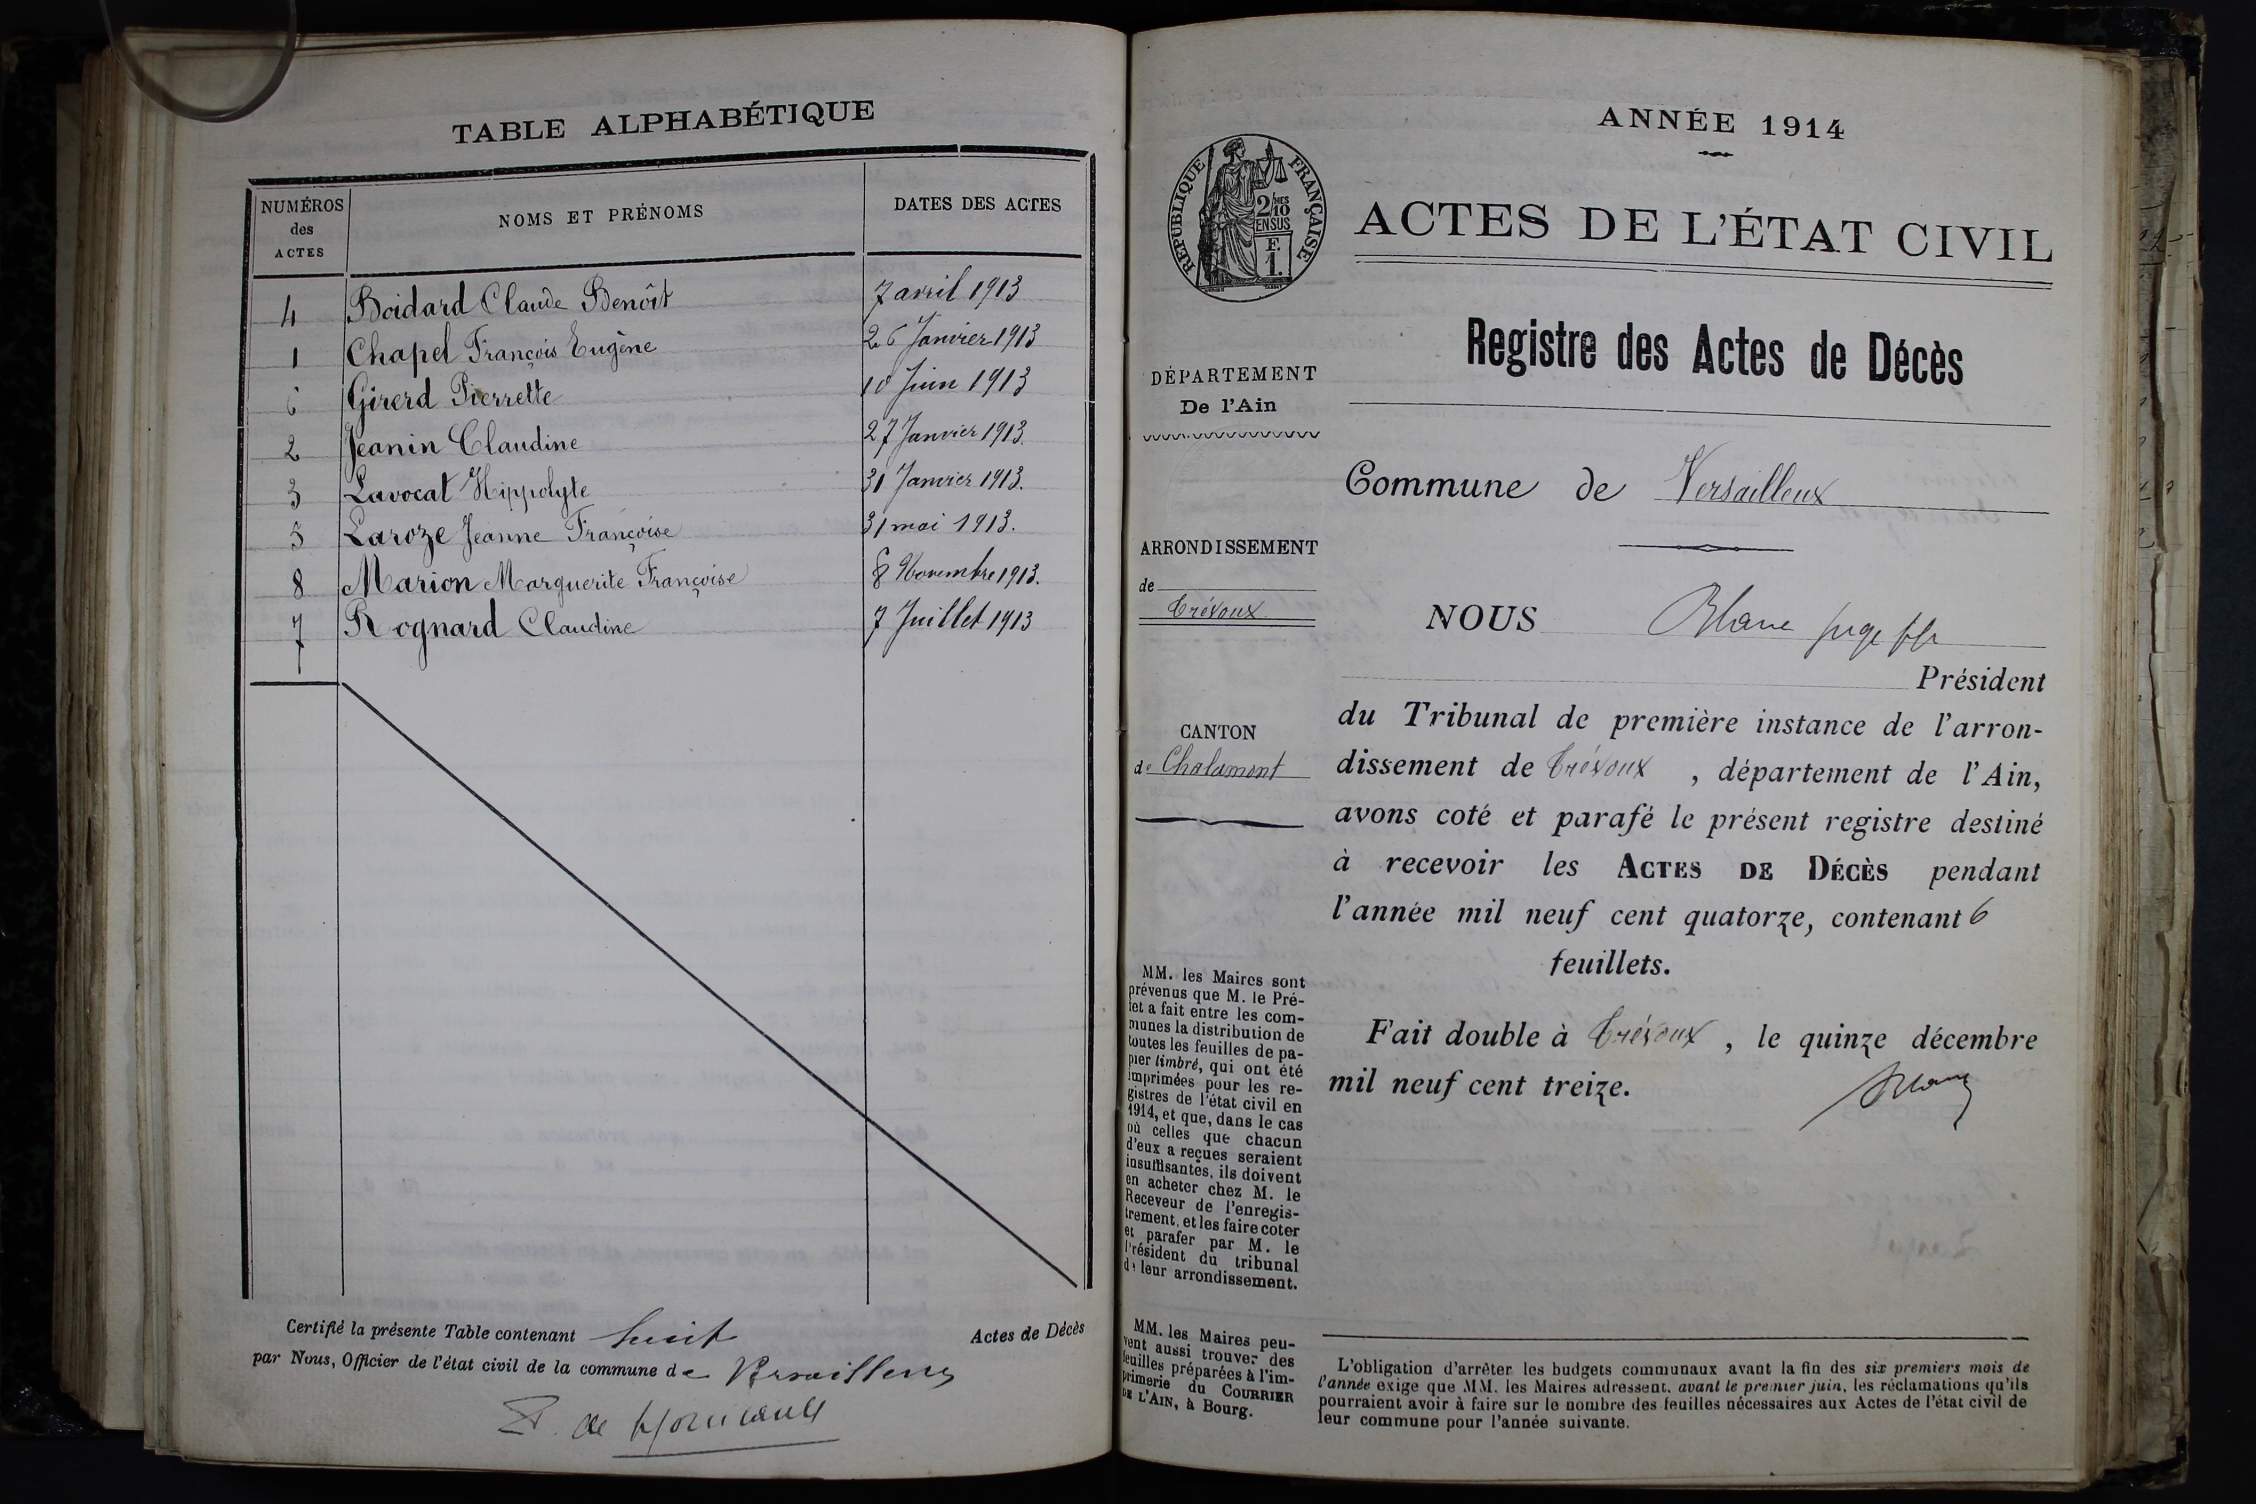 TABLE ALPHABÉTIQUE
NUMÉROS des ACTES
NOMS ET PRÉNOMS
DATES DES ACTES
4 Boidard Claude Benoît 7 avril 1913
1 Chapel François Eugène 26 Janvier 1913
6 Girerd Pierrette 10 Juin 1913
2 Jeanin Claudine 27 Janvier 1913.
3 Lavocat Hippolyte 31 Janvier 1913.
5 Laroze Jeanne Françoise 31 mai 1913.
8 Marion Marguerite Françoise 8 Novembre 1913.
7 Rognard Claudine 7 Juillet 1913
Certifié la présente Table contenant huit Actes de Décès
par Nous, Officier de l'état civil de la commune de Versailleux
ANNÉE 1914
RÉPUBLIQUE FRANÇAISE
2/10 MES
EN SUS
F.
1.
ACTES DE L'ÉTAT CIVIL
Registre des Actes de Décès
DÉPARTEMENT
De l'Ain
Commune de Versailleux
ARRONDISSEMENT
de
Trévoux
CANTON
de Chalamont
NOUS Blanc juge
Président
du Tribunal de première instance de l'arron-
dissement de Trévoux , département de l'Ain,
avons coté et parafé le présent registre destiné
à recevoir les ACTES DE DÉCÈS pendant
l'année mil neuf cent quatorze, contenant 6
feuillets.
Fait double à Trévoux , le quinze décembre
mil neuf cent treize.
Blanc
MM. les Maires sont
prévenus que M. le Pré-
fet a fait entre les com-
munes la distribution de
toutes les feuilles de pa-
pier timbré, qui ont été
imprimées pour les re-
gistres de l'état civil en
1914, et que, dans le cas
où celles que chacun
d'eux a reçues seraient
insuffisantes, ils doivent
en acheter chez M. le
Receveur de l'enregis-
trement, et les faire coter
et parafer par M. le
Président du tribunal
de leur arrondissement.
MM. les Maires peu-
vent aussi trouver des
feuilles préparées à l'im-
primerie du COURRIER
DE L'AIN, à Bourg.
L'obligation d'arrêter les budgets communaux avant la fin des six premiers mois de
l'année exige que MM. les Maires adressent, avant le premier juin, les réclamations qu'ils
pourraient avoir à faire sur le nombre des feuilles nécessaires aux Actes de l'état civil de
leur commune pour l'année suivante.